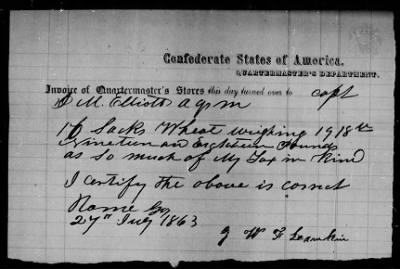 Confederate States of America.
QUARTERMASTER'S DEPARTMENT.
Invoice of Quartermaster's Stores this day turned over to Capt
J M. Elliott a q m
16 Sacks Wheat weighing 1918 lb
Nineteen an Eighteen Pounds
as so much of My Tax in Kind
I certify the above is correct
Rome Ga
27th July 1863
W F